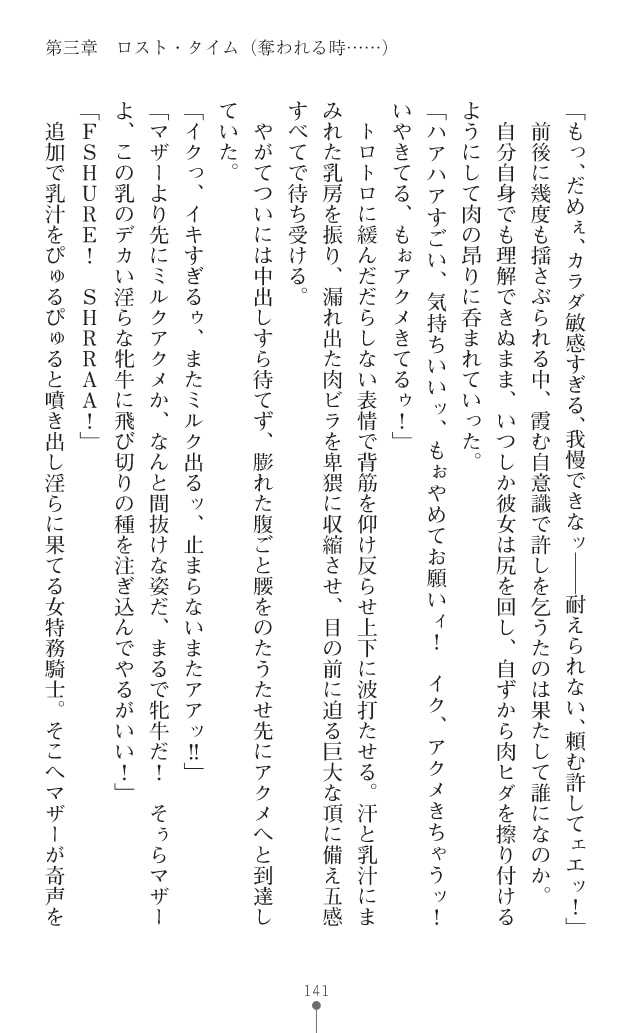 第三章　ロスト・タイム（奪われる時……）
「もっ、だめぇ、カラダ敏感すぎる、我慢できなッ――耐えられない、頼む許してェエッ！」
前後に幾度も揺さぶられる中、霞む自意識で許しを乞うたのは果たして誰になのか。
自分自身でも理解できぬまま、いつしか彼女は尻を回し、自ずから肉ヒダを擦り付ける
ようにして肉の昂りに呑まれていった。
「ハアハアすごい、気持ちいいッ、もぉやめてお願いィ！　イク、アクメきちゃうッ！
いやきてる、もぉアクメきてるゥ！」
トロトロに緩んだだらしない表情で背筋を仰け反らせ上下に波打たせる。汗と乳汁にま
みれた乳房を振り、漏れ出た肉ビラを卑猥に収縮させ、目の前に迫る巨大な頂に備え五感
すべてで待ち受ける。
やがてついには中出しすら待てず、膨れた腹ごと腰をのたうたせ先にアクメへと到達し
ていた。
「イクっ、イキすぎるゥ、またミルク出るッ、止まらないまたアアッ‼」
「マザーより先にミルクアクメか、なんと間抜けな姿だ、まるで牝牛だ！　そぅらマザー
よ、この乳のデカい淫らな牝牛に飛び切りの種を注ぎ込んでやるがいい！」
「ＦＳＨＵＲＥ！　ＳＨＲＲＡＡ！」
追加で乳汁をぴゅるぴゅると噴き出し淫らに果てる女特務騎士。そこへマザーが奇声を
141